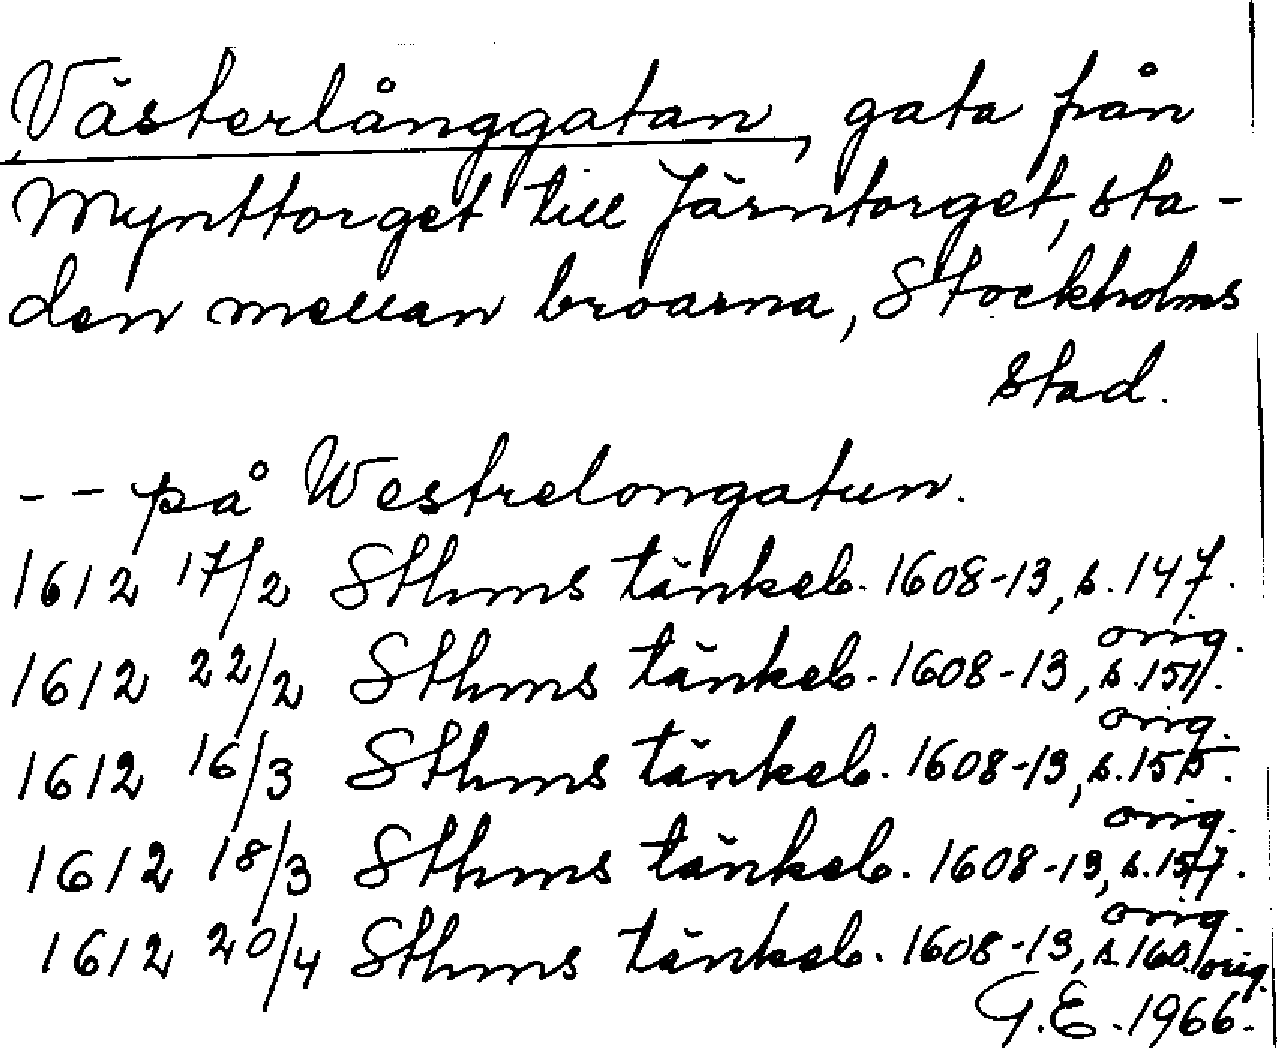 Västerlånggatan, gata från
Mynttorget till Järntorget, sta-
den mellan broarna, Stockholms
stad.
-- på Westrelongatun.
1612 17/2 Sthms tänkeb. 1608-13, s. 147.
orig.
1612 22/2 Sthms tänkeb. 1608-13, s. 151.
orig.
1612 16/3 Sthms tänkeb. 1608-13, s. 155.
orig.
1612 18/3 Sthms tänkeb. 1608-13, s. 157.
orig.
1612 20/4 Sthms tänkeb. 1608-13, s. 160. orig.
G.E. 1966.